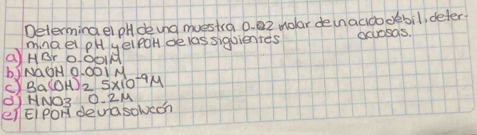 Determina el pH de una muestra 0.02 molar de un acido debil, deter-
mina el pH y el POH de las siguientes acuosas.
a) HBr 0.001M
b) NaOH 0.001M
c) Ba(OH)2 5x10^-9M
d) HNO3 0.2M
e) El POH de una solucón